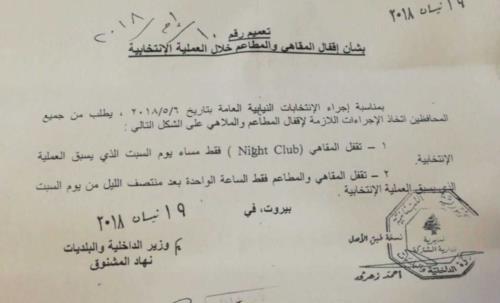 ١٩ نيسان ٢٠١٨
تعميم رقم ١٠/إم/٢٠١٨
بشأن إقفال المقاهي والمطاعم خلال العملية الإنتخابية
بمناسبة إجراء الإنتخابات النيابية العامة بتاريخ ٢٠١٨/٥/٦ ، يطلب من جميع
المحافظين اتخاذ الإجراءات اللازمة لإقفال المطاعم والملاهي على الشكل التالي :
١ – تقفل المقاهي (Night Club ) فقط مساء يوم السبت الذي يسبق العملية
الإنتخابية.
٢ – تقفل المقاهي والمطاعم فقط الساعة الواحدة بعد منتصف الليل من يوم السبت
الذي يسبق العملية الإنتخابية .
بيروت، في ١٩ نيسان ٢٠١٨
وزير الداخلية والبلديات
نهاد المشنوق
نسخة طبق الأصل
أحمد زعرور